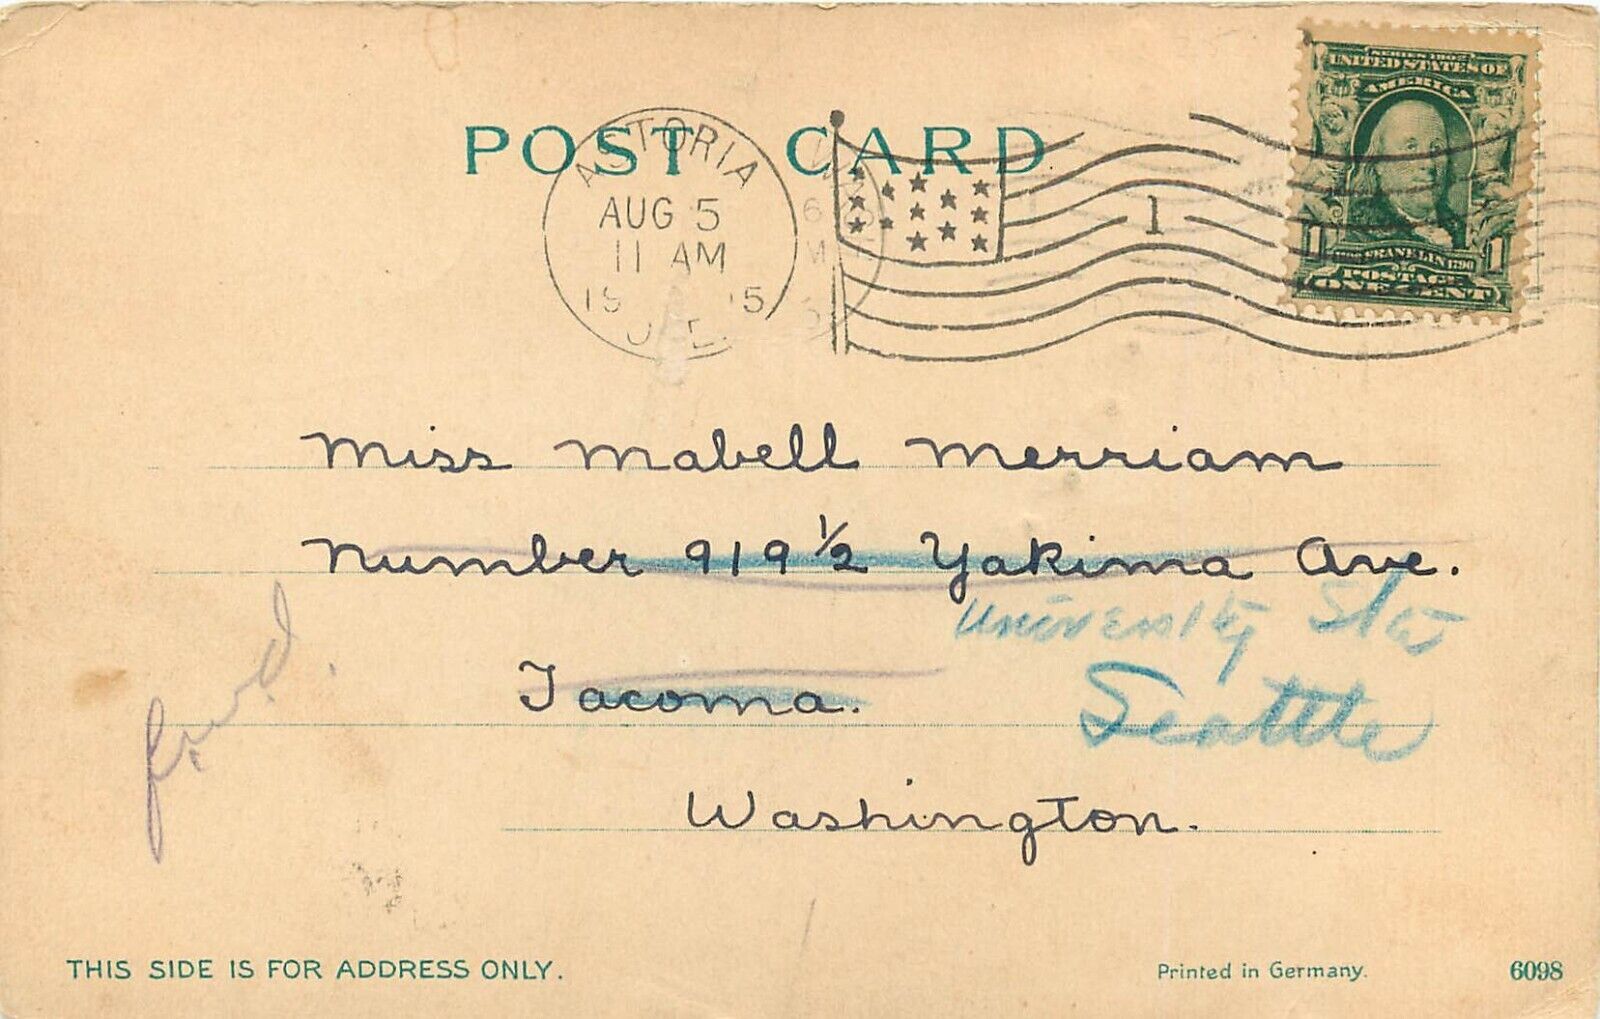 POST CARD
ASTORIA
AUG 5
11 AM
19 5
ORE.
WASH
6
M
1
SERIES 1902
UNITED STATES OF
AMERICA
FRANKLIN 1790
1 1
POSTAGE
ONE CENT
Miss Mabell Merriam
Number 919 1/2 Yakima Ave.
University Sta
Tacoma.
Seattle
fwd.
Washington.
THIS SIDE IS FOR ADDRESS ONLY.
Printed in Germany.
6098